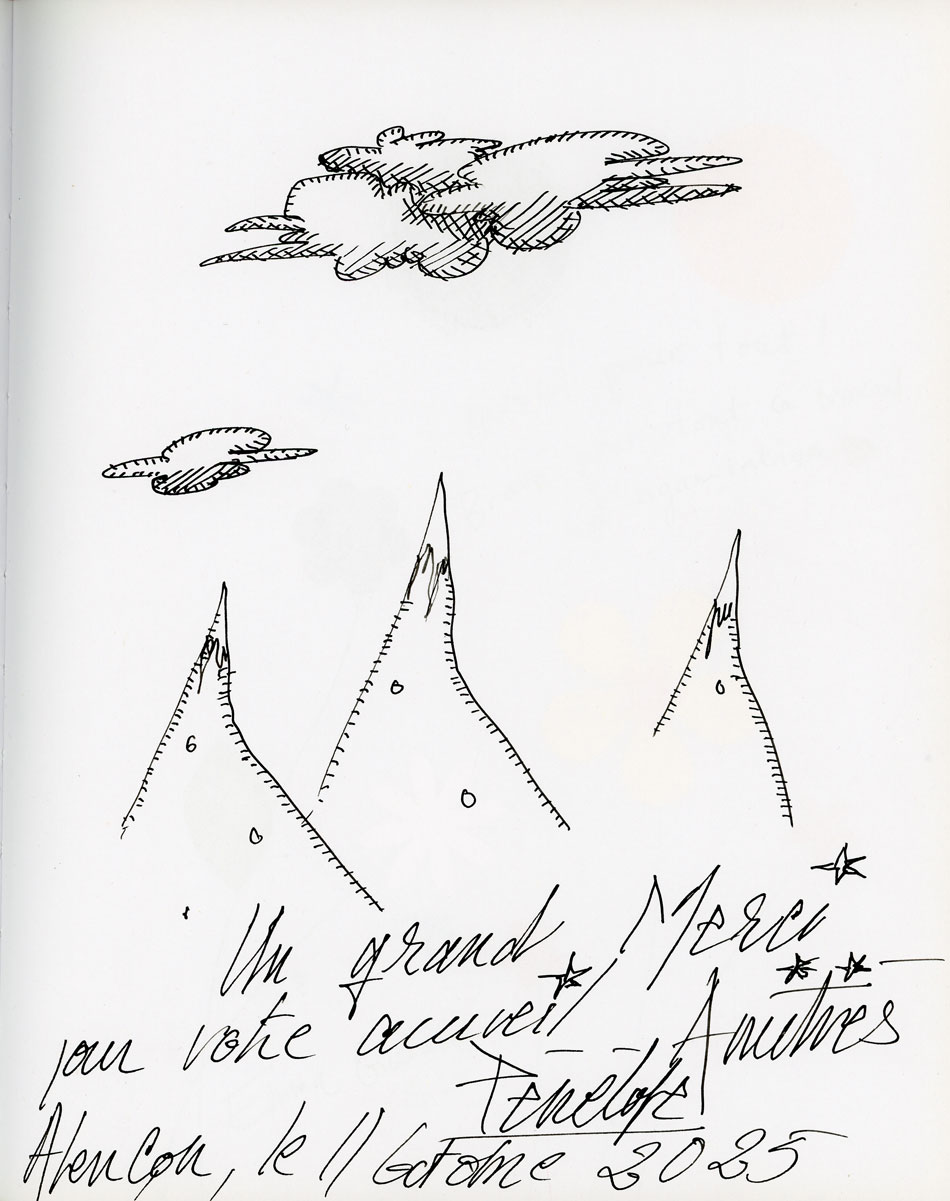 Un grand Merci
pour votre accueil, Amitiés
Pénélope
Alençon, le 11 Octobre 2025